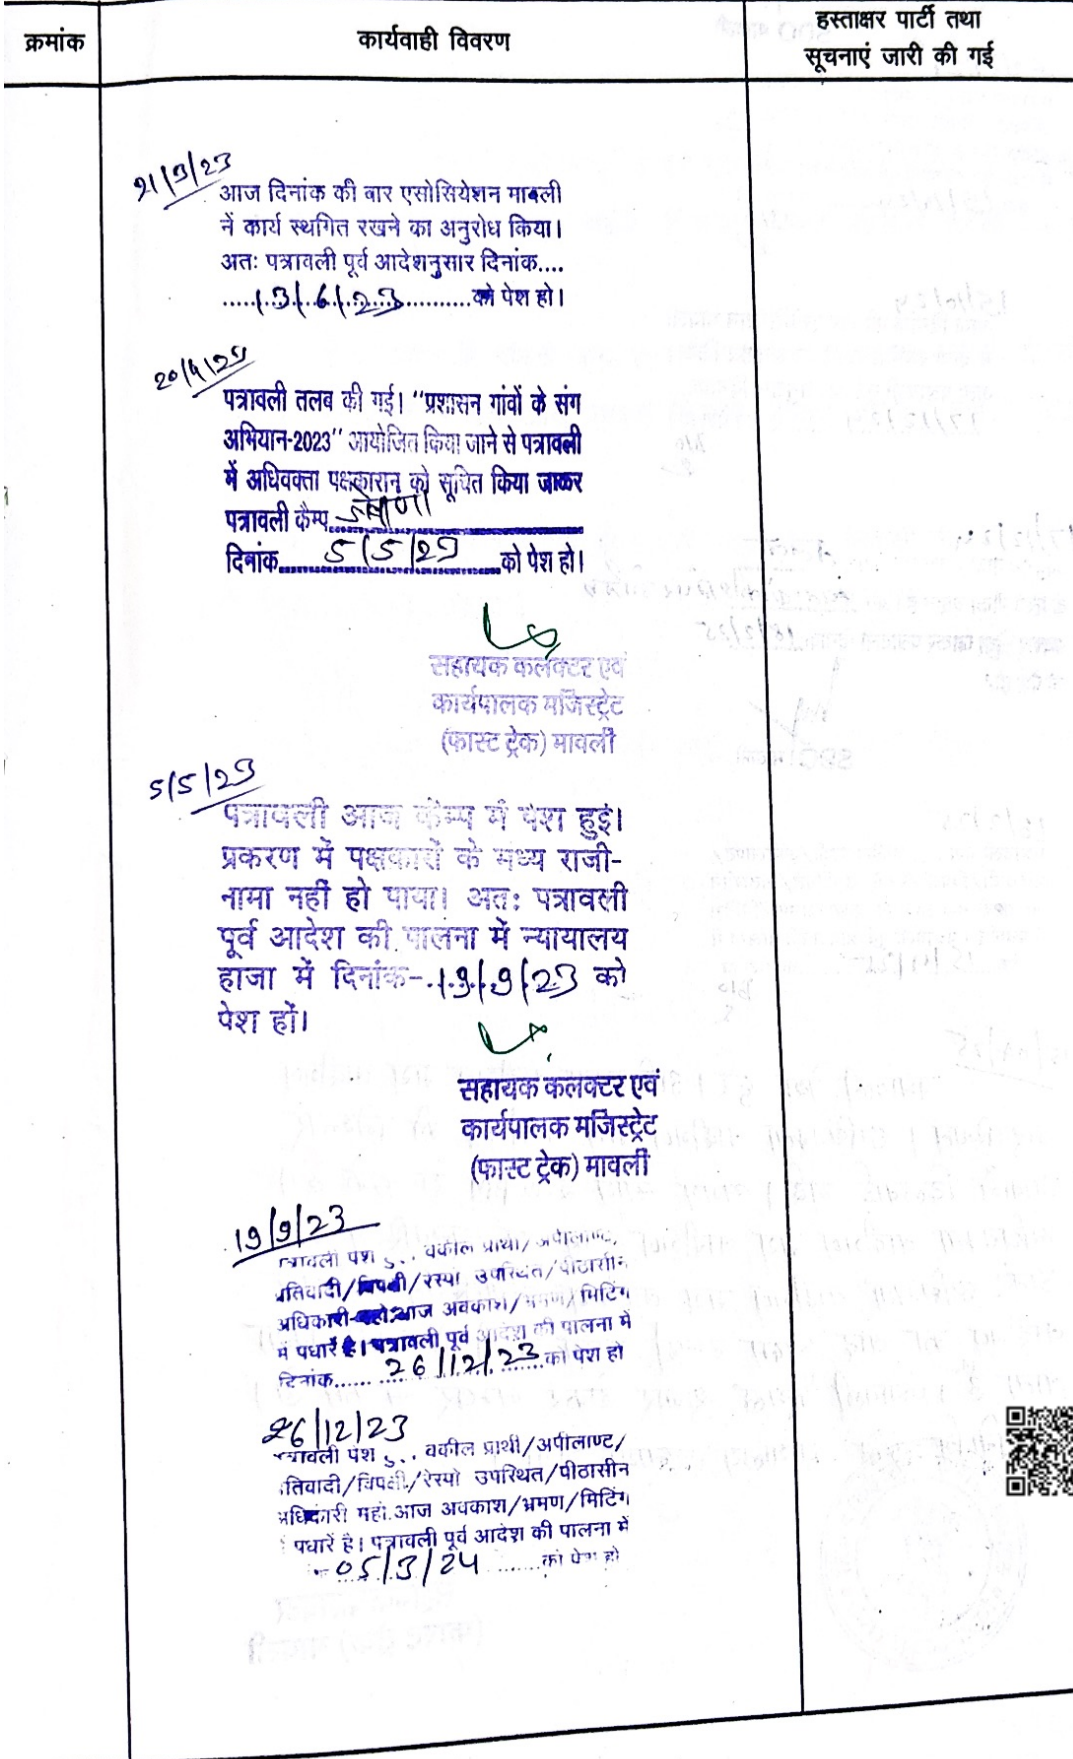 क्रमांक
कार्यवाही विवरण
हस्ताक्षर पार्टी तथा
सूचनाएं जारी की गई
21/3/23
आज दिनांक की बार एसोसियेशन मावली
नें कार्य स्थगित रखने का अनुरोध किया।
अतः पत्रावली पूर्व आदेशनुसार दिनांक....
......13/6/23..........को पेश हो।
20/4/23
पत्रावली तलब की गई। "प्रशासन गांवों के संग
अभियान-2023" आयोजित किया जाने से पत्रावली
में अधिवक्ता पक्षकारान को सूचित किया जाकर
पत्रावली कैम्प
दिनांक......5/5/23......को पेश हो।
सहायक कलक्टर एवं
कार्यपालक मजिस्ट्रेट
(फास्ट ट्रेक) मावली
5/5/23
पत्रावली आज कैम्प में पेश हुई।
प्रकरण में पक्षकारों के मध्य राजी-
नामा नहीं हो पाया। अतः पत्रावली
पूर्व आदेश की पालना में न्यायालय
हाजा में दिनांक-.19/9/23 को
पेश हों।
सहायक कलक्टर एवं
कार्यपालक मजिस्ट्रेट
(फास्ट ट्रेक) मावली
19/9/23
पेश वकील प्रार्थी/अपीलाण्ट
/विपक्षी/रेस्पो उपस्थित/पीठासीन
अधिकारी महो.आज अवकाश/भ्रमण/मिटिंग
में पधारें है। पत्रावली पूर्व आदेश की पालना में
दिनांक...... 26/12/23 ...को पेश हो
26/12/23
पेश वकील प्रार्थी/अपीलाण्ट/
/विपक्षी/रेस्पो उपस्थित/पीठासीन
अधिकारी महो.आज अवकाश/भ्रमण/मिटिंग
पधारें है। पत्रावली पूर्व आदेश की पालना में
05/3/24 ......को पेश हो